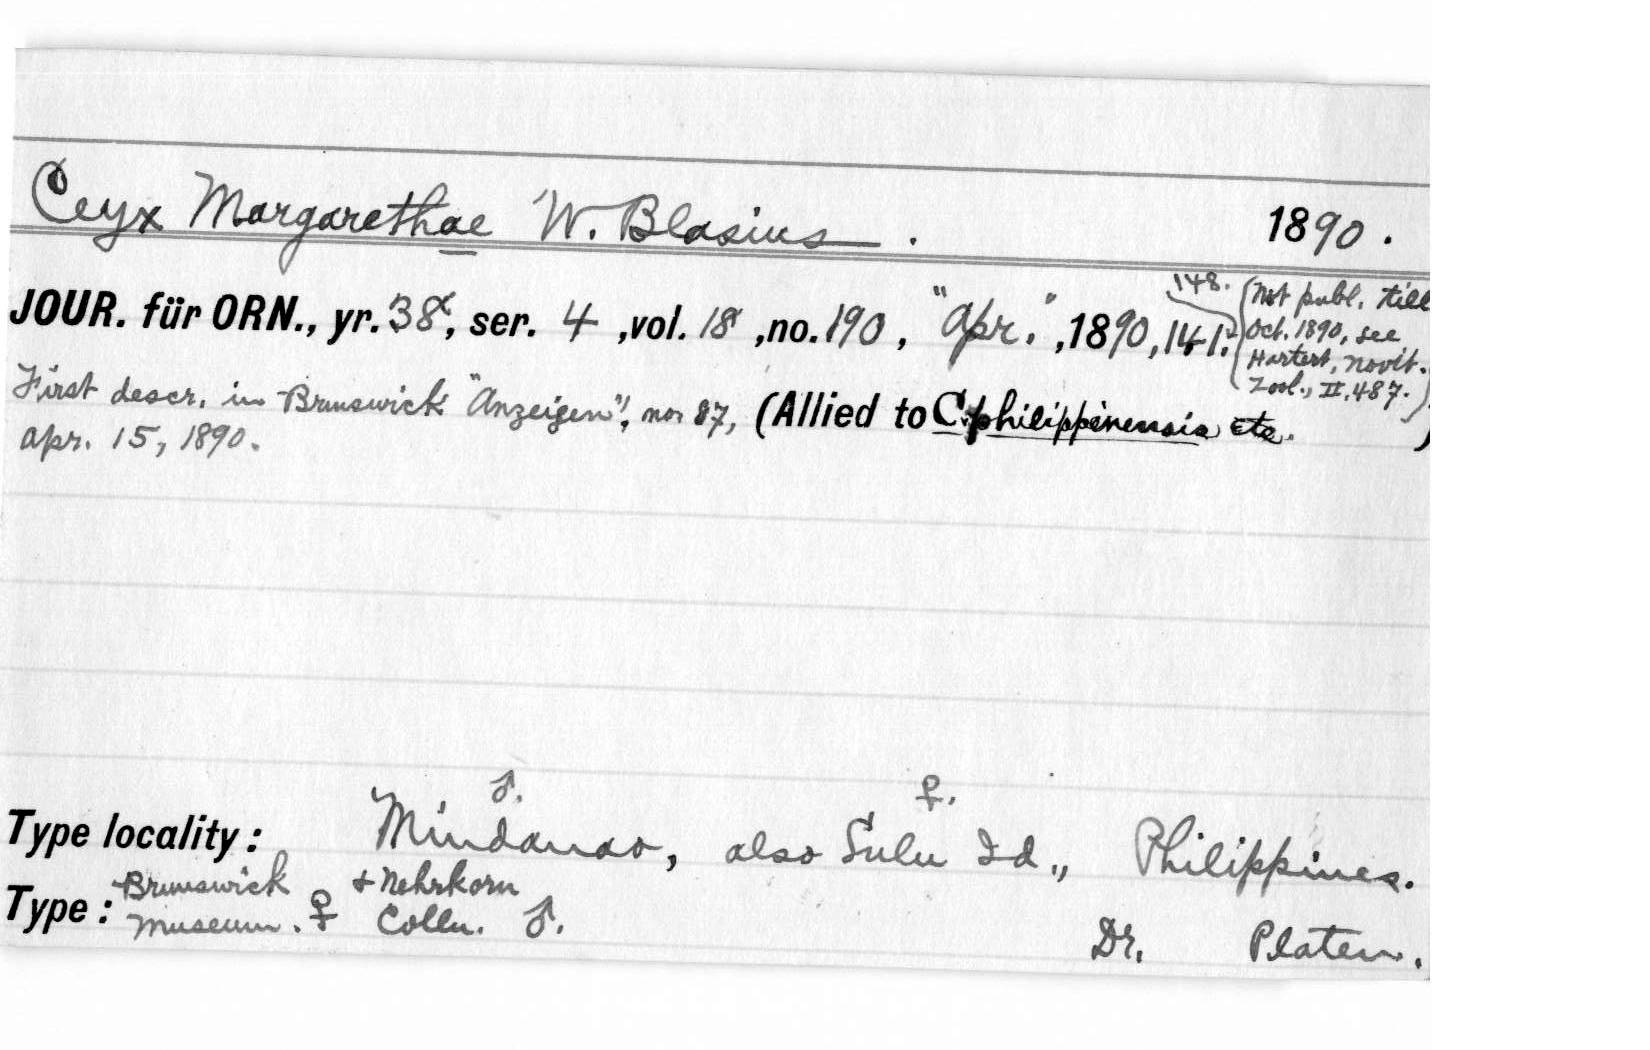 Ceyx Margarethae W. Blasius. 1890.
148.
JOUR. für ORN., yr. 38, ser. 4, vol. 18, no. 190, "Apr.", 1890, 141.
(Not publ. till
Oct. 1890, see
Hartert, Novit.
Zool., II, 487.)
First descr. in Brunswick "Anzeigen", no. 87, (Allied to C. philippinensis etc. )
Apr. 15, 1890.
♂. ♀.
Type locality: Mindanao, also Sulu Id., Philippines.
Type: Brunswick Museum. ♀ + Nehrkorn Colln. ♂.
Dr. Platen.